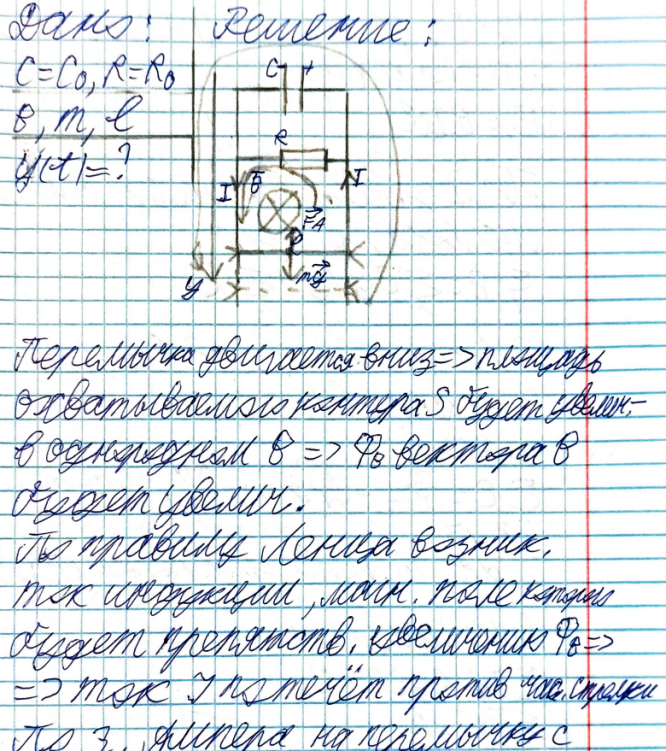 Дано: Решение:
C=C₀, R=R₀
B, m, l
y(t)=?
C +
R
I B I
F_A
mg
y
Перемычка двигается вниз => площадь
охватываемого контура S будет увелич-
в однородном B => Φ_B вектора B
будет увелич.
По правилу Ленца возник.
ток индукции, магн. поле которого
будет препятств. увеличению Φ_B =>
=> ток I потечёт против час. стрелки
По з. Ампера на перемычку с